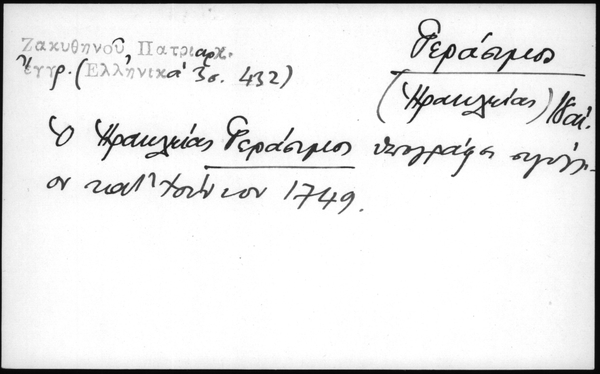 Ζακυθηνοῦ, Πατριαρχ.
ἔγγρ. (Ἑλληνικά 3 σ. 432)
Γεράσιμος
(Ἡρακλείας) 18 αἰ.
Ὁ Ἡρακλείας Γεράσιμος ὑπογράφει σιγίλλι-
ον κατ' Ἰούνιον 1749.